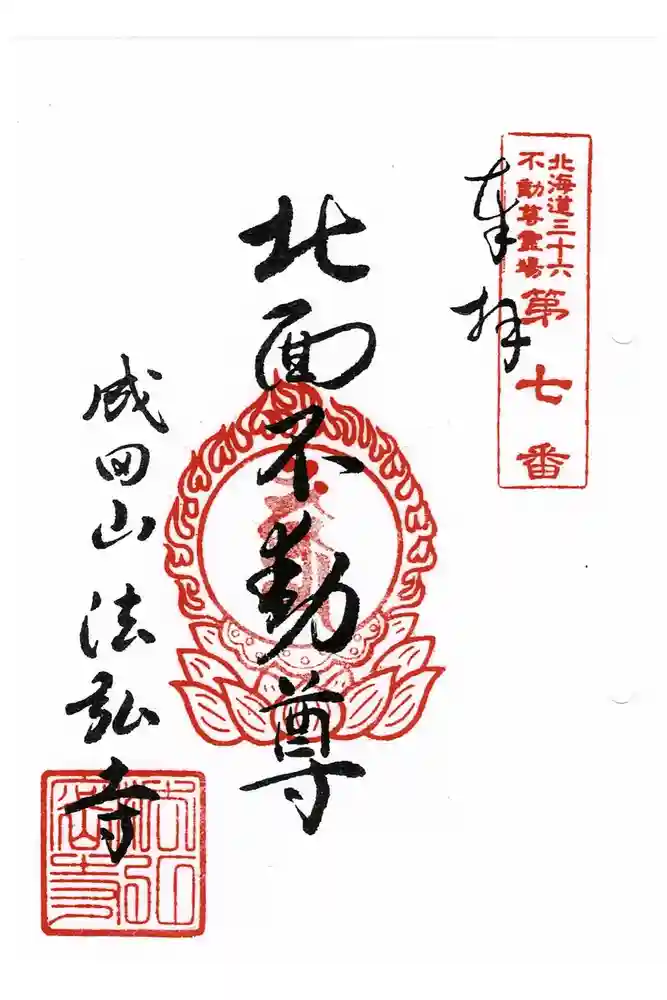 北海道三十六
不動尊霊場
第七番
奉拝
北面不動尊
成田山法弘寺